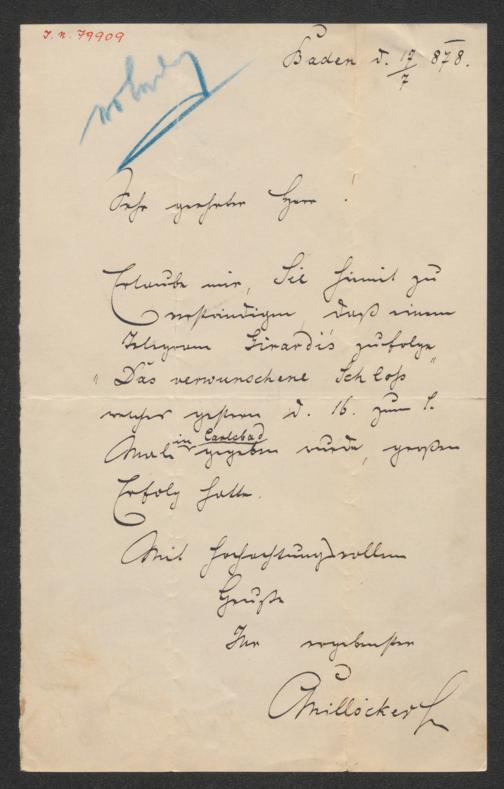 I. N. 79909
Baden d. 17/7 878.
Sehr geehrter Herr !
Erlaube mir, Sie hiemit zu
verständigen, daß einem
Telegram Girardi's zufolge
„Das verwunschene Schloß"
welches gestern d. 16. zum 1.
Male in Carlsbad gegeben wurde, großen
Erfolg hatte.
Mit hochachtungsvollem
Gruße
Ihr ergebenster
CMillöcker